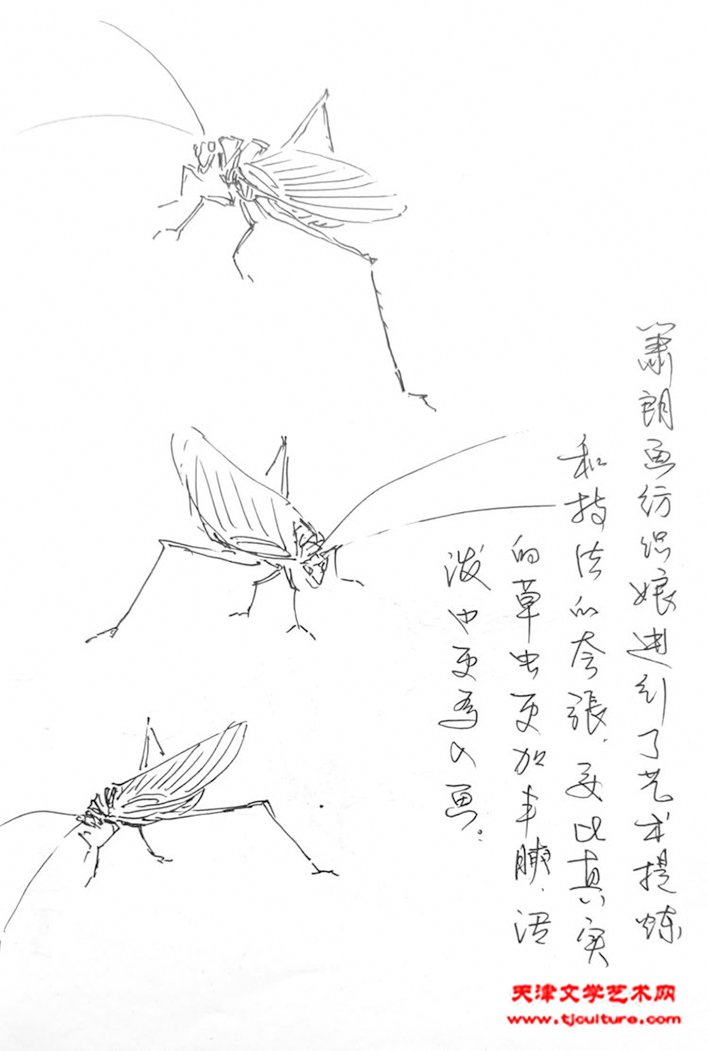 萧朗画纺织娘进行了艺术提炼
和技法的夸張.要比真实
的草虫更加丰腴.活
泼也更為入画.
天津文学艺术网
www.tjculture.com